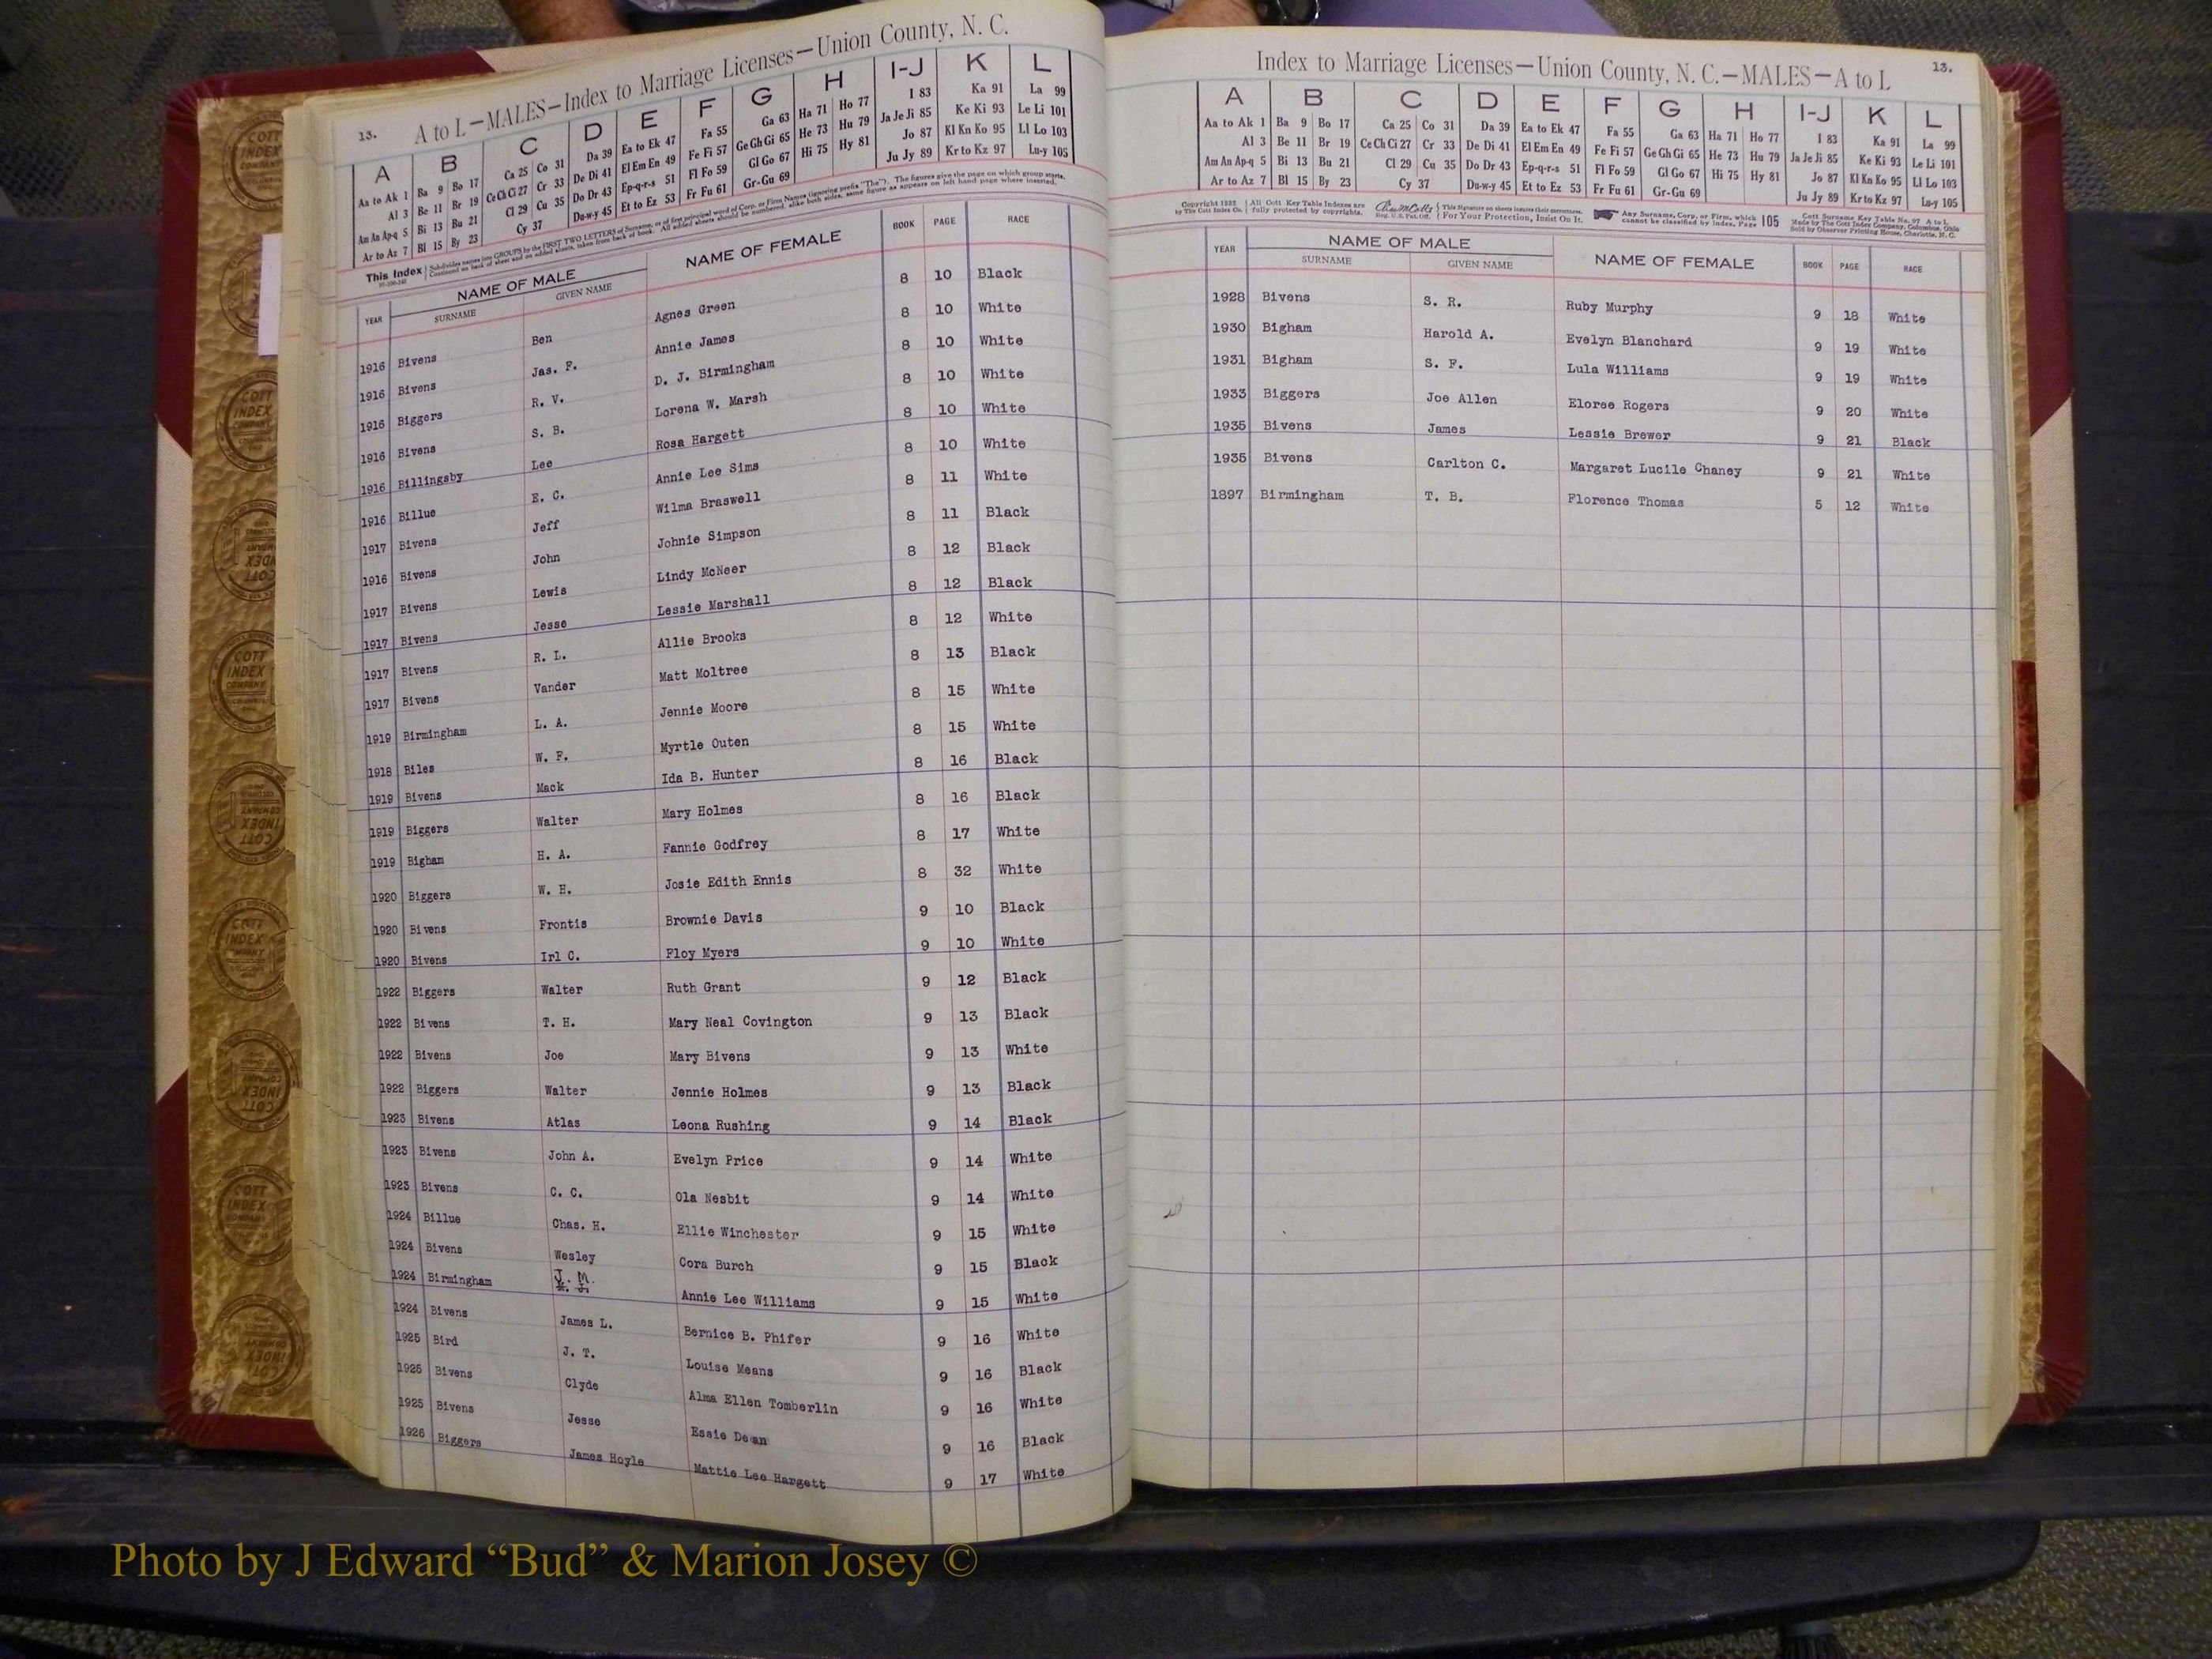 13. A to L—MALES—Index to Marriage Licenses—Union County, N. C.
A B C D E F G H I-J K L
Aa to Ak 1 Ba 9 Bo 17 Ca 25 Co 31 Da 39 Ea to Ek 47 Fa 55 Ga 63 Ha 71 Ho 77 I 83 Ka 91 La 99
Al 3 Be 11 Br 19 Ce Ch Ci 27 Cr 33 De Di 41 El Em En 49 Fe Fi 57 Ge Gh Gi 65 He 73 Hu 79 Ja Je Ji 85 Ke Ki 93 Le Li 101
Am An Ap-q 5 Bi 13 Bu 21 Cl 29 Cu 35 Do Dr 43 Ep-q-r-s 51 Fl Fo 59 Gl Go 67 Hi 75 Hy 81 Jo 87 Kl Kn Ko 95 Ll Lo 103
Ar to Az 7 Bl 15 By 23 Cy 37 Du-w-y 45 Et to Ez 53 Fr Fu 61 Gr-Gu 69 Ju Jy 89 Kr to Kz 97 Lu-y 105
This Index Subdivides names into GROUPS by the FIRST TWO LETTERS of Surname, or of first principal word of Corp. or Firm Names (ignoring prefix "The"). The figures give the page on which group starts.
Continued on back of sheet and on added sheets, taken from back of book. All added sheets should be numbered, alike both sides, same figure as appears on left hand page where inserted.
YEAR NAME OF MALE NAME OF FEMALE BOOK PAGE RACE
SURNAME GIVEN NAME
1916 Bivens Ben Agnes Green 8 10 Black
1916 Bivens Jas. F. Annie James 8 10 White
1916 Biggers R. V. D. J. Birmingham 8 10 White
1916 Bivens S. B. Lorena W. Marsh 8 10 White
1916 Billingsby Lee Rosa Hargett 8 10 White
1916 Billue E. C. Annie Lee Sims 8 10 White
1917 Bivens Jeff Wilma Braswell 8 11 White
1916 Bivens John Johnie Simpson 8 11 Black
1917 Bivens Lewis Lindy McNeer 8 12 Black
1917 Bivens Jesse Lessie Marshall 8 12 Black
1917 Bivens R. L. Allie Brooks 8 12 White
1917 Bivens Vander Matt Moltree 8 13 Black
1919 Birmingham L. A. Jennie Moore 8 15 White
1918 Biles W. F. Myrtle Outen 8 15 White
1919 Bivens Mack Ida B. Hunter 8 16 Black
1919 Biggers Walter Mary Holmes 8 16 Black
1919 Bigham H. A. Fannie Godfrey 8 17 White
1920 Biggers W. H. Josie Edith Ennis 8 32 White
1920 Bivens Frontis Brownie Davis 9 10 Black
1920 Bivens Irl C. Ploy Myers 9 10 White
1922 Biggers Walter Ruth Grant 9 12 Black
1922 Bivens T. H. Mary Neal Covington 9 13 Black
1922 Bivens Joe Mary Bivens 9 13 White
1922 Biggers Walter Jennie Holmes 9 13 Black
1923 Bivens Atlas Leona Rushing 9 14 Black
1923 Bivens John A. Evelyn Price 9 14 White
1923 Bivens C. C. Ola Nesbit 9 14 White
1924 Billue Chas. H. Ellie Winchester 9 15 White
1924 Bivens Wesley Cora Burch 9 15 Black
1924 Birmingham J. M. Annie Lee Williams 9 15 White
1924 Bivens James L. Bernice B. Phifer 9 16 White
1925 Bird J. T. Louise Means 9 16 Black
1925 Bivens Clyde Alma Ellen Tomberlin 9 16 White
1925 Bivens Jesse Essie Dean 9 16 Black
1926 Biggers James Hoyle Mattie Lee Hargett 9 17 White
Index to Marriage Licenses—Union County, N. C.—MALES—A to L 13.
A B C D E F G H I-J K L
Aa to Ak 1 Ba 9 Bo 17 Ca 25 Co 31 Da 39 Ea to Ek 47 Fa 55 Ga 63 Ha 71 Ho 77 I 83 Ka 91 La 99
Al 3 Be 11 Br 19 Ce Ch Ci 27 Cr 33 De Di 41 El Em En 49 Fe Fi 57 Ge Gh Gi 65 He 73 Hu 79 Ja Je Ji 85 Ke Ki 93 Le Li 101
Am An Ap-q 5 Bi 13 Bu 21 Cl 29 Cu 35 Do Dr 43 Ep-q-r-s 51 Fl Fo 59 Gl Go 67 Hi 75 Hy 81 Jo 87 Kl Kn Ko 95 Ll Lo 103
Ar to Az 7 Bl 15 By 23 Cy 37 Du-w-y 45 Et to Ez 53 Fr Fu 61 Gr-Gu 69 Ju Jy 89 Kr to Kz 97 Lu-y 105
Copyright 1932 All Cott Key Table Indexes are This Signature on sheets insures their correctness. Any Surname, Corp. or Firm, which 105 Cott Surname Key Table No. 97 A to L
by The Cott Index Co. fully protected by copyrights. Reg. U.S. Pat. Off. For Your Protection, Insist On It. cannot be classified by Index, Page Made by The Cott Index Company, Columbus, Ohio
Sold by Observer Printing House, Charlotte, N. C.
YEAR NAME OF MALE NAME OF FEMALE BOOK PAGE RACE
SURNAME GIVEN NAME
1928 Bivens S. R. Ruby Murphy 9 18 White
1930 Bigham Harold A. Evelyn Blanchard 9 19 White
1931 Bigham S. F. Lula Williams 9 19 White
1933 Biggers Joe Allen Eloree Rogers 9 20 White
1935 Bivens James Lessie Brewer 9 21 Black
1935 Bivens Carlton C. Margaret Lucile Chaney 9 21 White
1897 Birmingham T. B. Florence Thomas 5 12 White
COTT INDEX COMPANY
Photo by J Edward “Bud” & Marion Josey ©